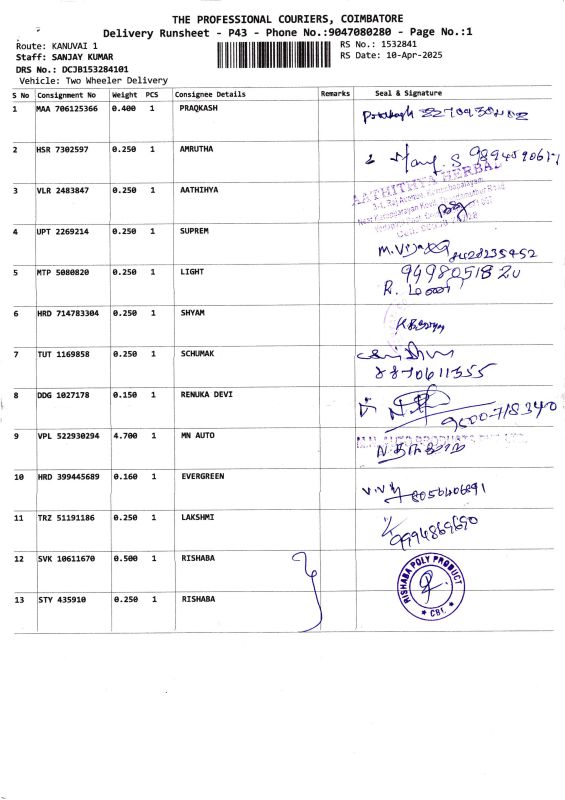 THE PROFESSIONAL COURIERS, COIMBATORE
Delivery Runsheet - P43 - Phone No.:9047080280 - Page No.:1
Route: KANUVAI 1
RS No.: 1532841
Staff: SANJAY KUMAR
RS Date: 10-Apr-2025
DRS No.: DCJB153284101
Vehicle: Two Wheeler Delivery
S No Consignment No Weight PCS Consignee Details Remarks Seal & Signature
1 MAA 706125366 0.400 1 PRAQKASH
2 HSR 7302597 0.250 1 AMRUTHA
3 VLR 2483847 0.250 1 AATHIHYA
AATHITHYA HERBAL
4 UPT 2269214 0.250 1 SUPREM
8428235452
5 MTP 5080820 0.250 1 LIGHT
6 HRD 714783304 0.250 1 SHYAM
7 TUT 1169858 0.250 1 SCHUMAK
8 DDG 1027178 0.150 1 RENUKA DEVI
9600718340
9 VPL 522930294 4.700 1 MN AUTO
10 HRD 399445689 0.160 1 EVERGREEN
11 TRZ 51191186 0.250 1 LAKSHMI
9994869690
12 SVK 10611670 0.500 1 RISHABA
RISHABA POLY PRODUCT
* CBE. *
13 STY 435910 0.250 1 RISHABA